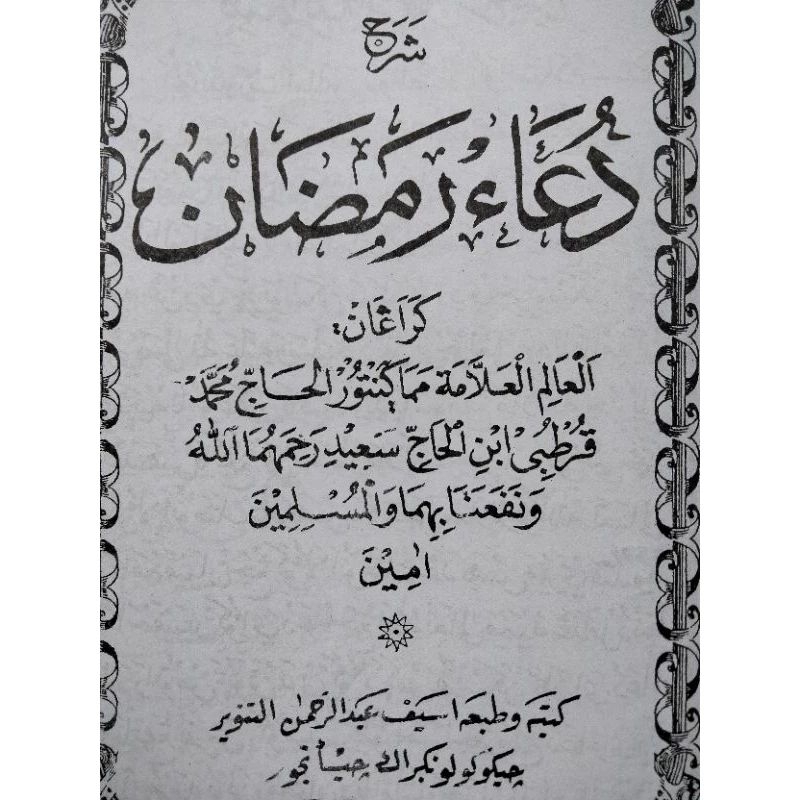 شَرَحْ
دُعَاءْ رَمَضَانْ
كَرَاڠَانْ:
اَلْعَالِمِ الْعَلَّامَةْ مَمَا كَنْتُوْرْ الْحَاجِّ مُحَمَّدْ
قُرْطُبِىْ ابْنِ الْحَاجِّ سَعِيْدِ رَحِمَهُمَا اللهُ
وَنَفَعَنَا بِهِمَا وَالْمُسْلِمِيْنَ
اٰمِيْنَ
كتبه وطبعه اسيف عبد الرحمن التنوير